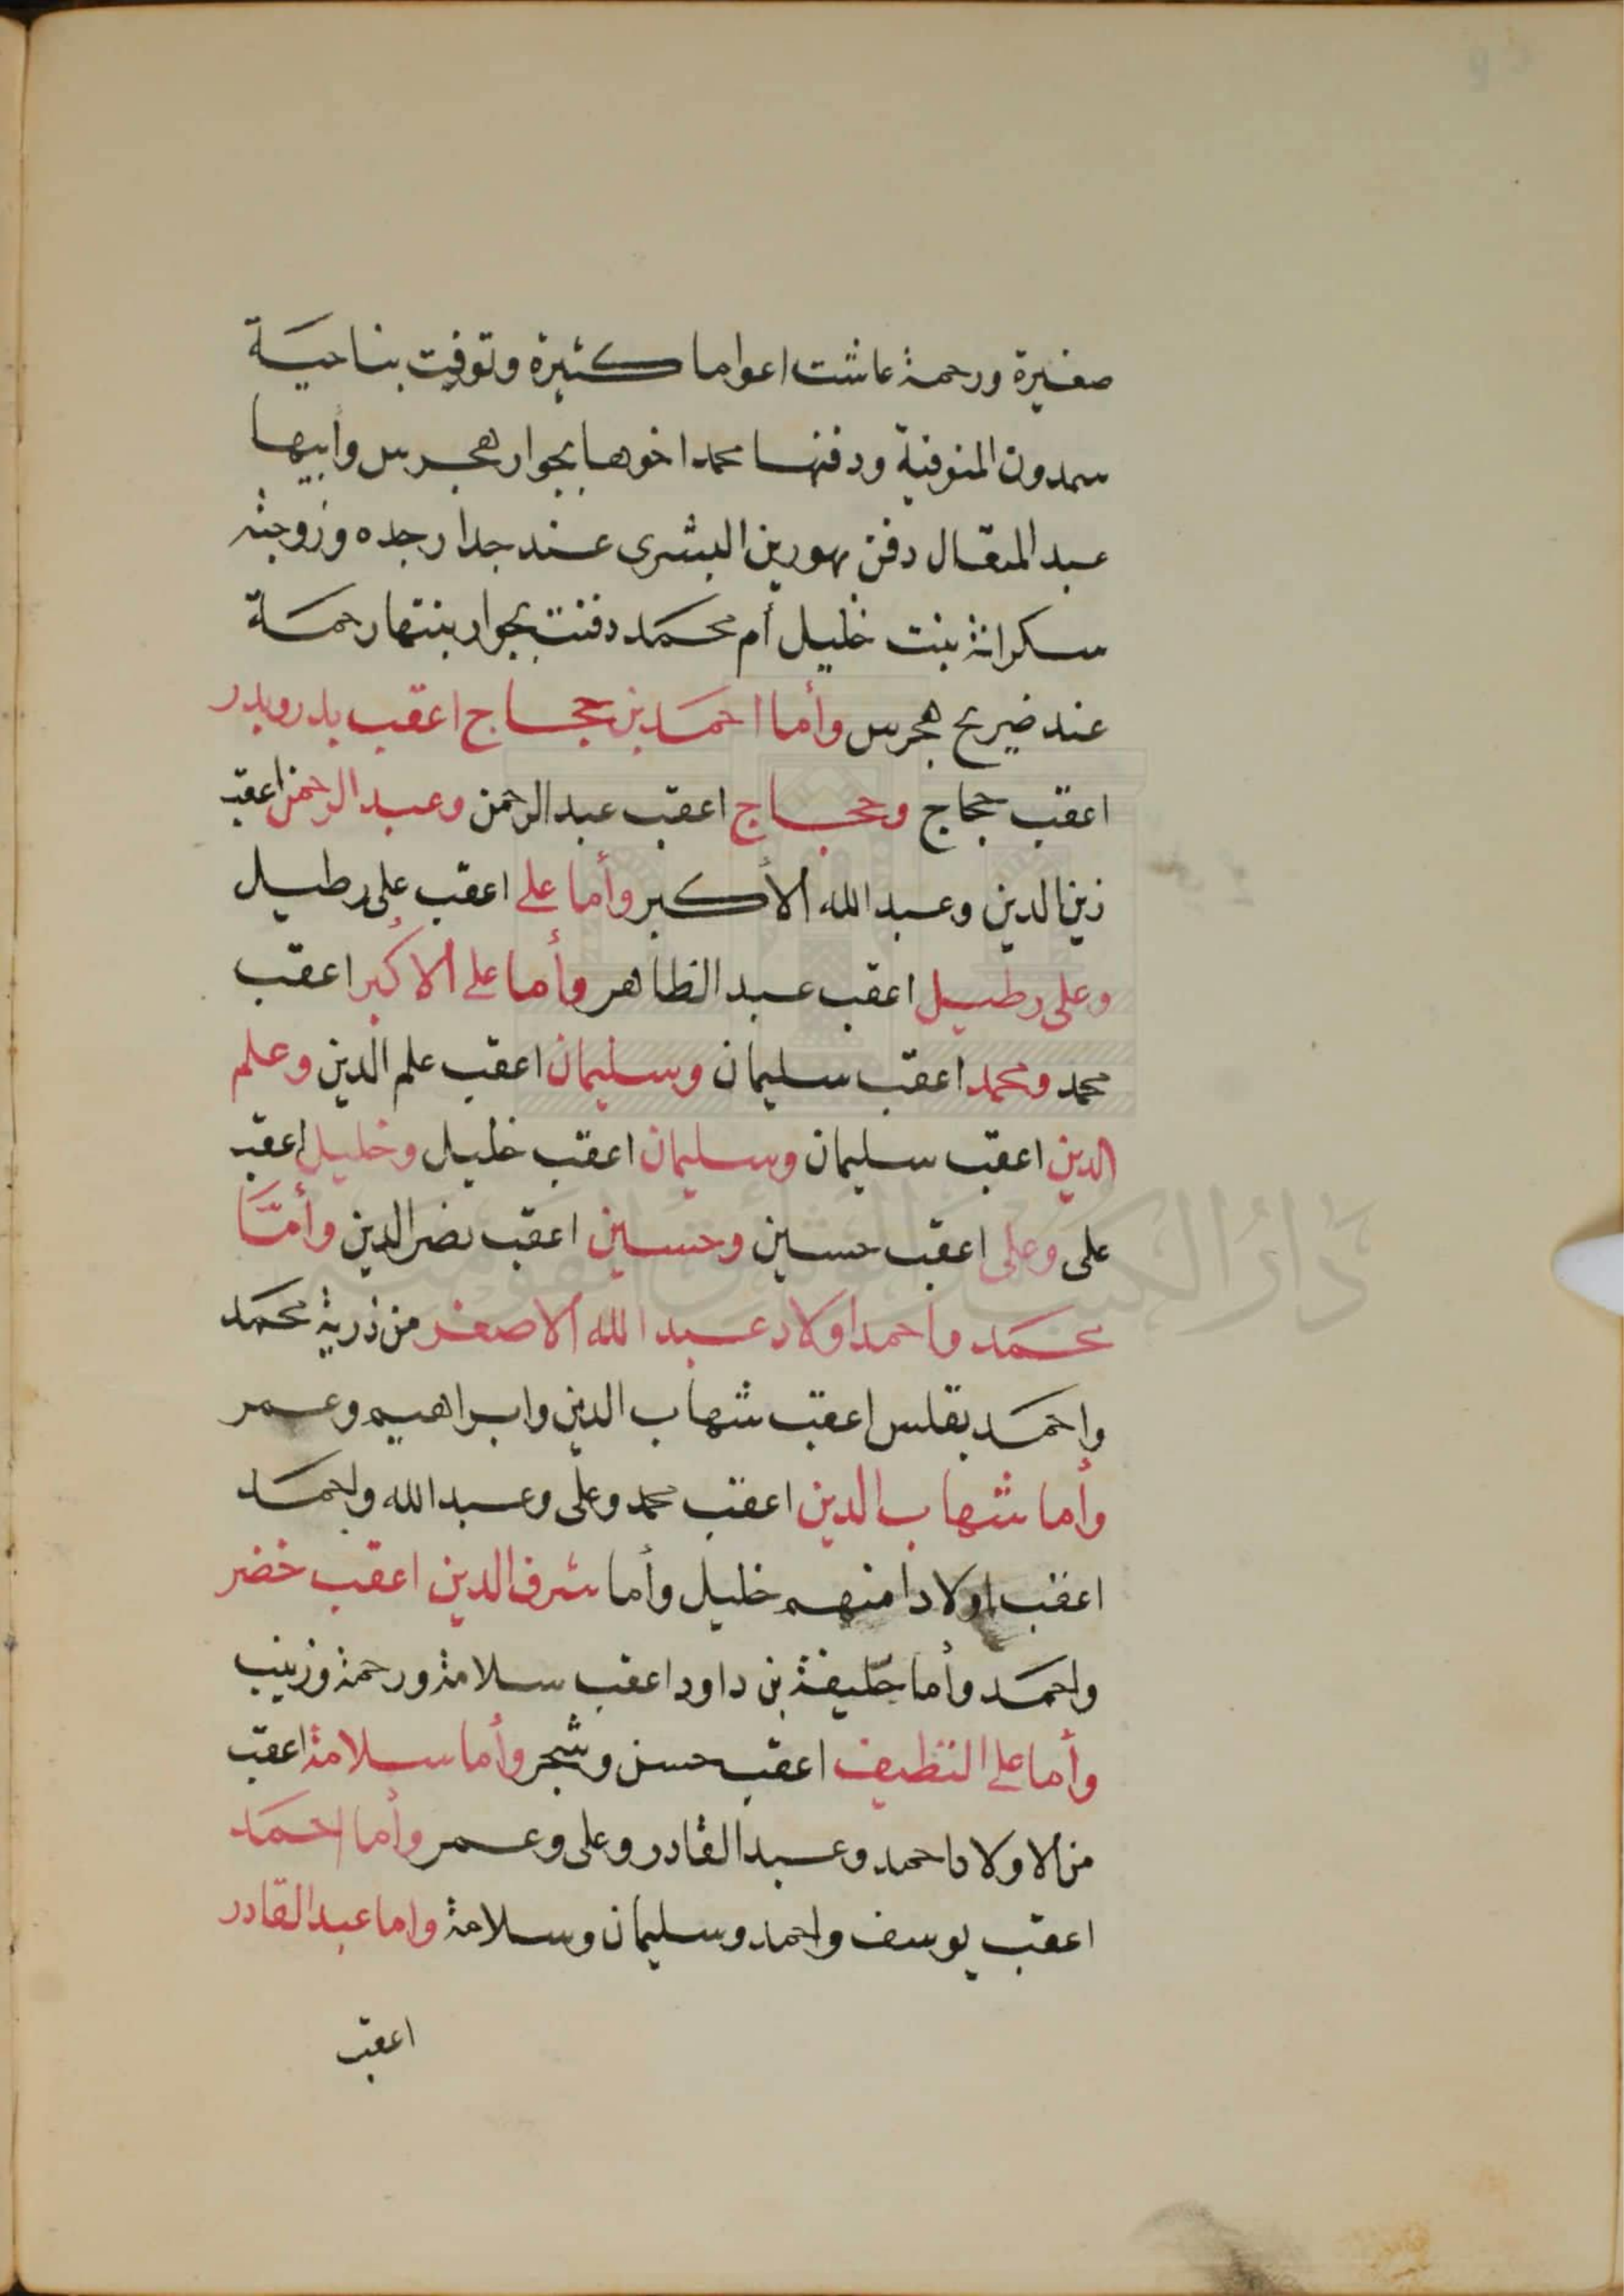 صغيرة ورحمة عاشت اعواما كثيرة وتوفيت بناحية
سمدون المنوفية ودفنها محمد اخوها بجوار هجرس وأبيها
عبد المتعال دفن بهورين البشرى عند جدار جده وزوجته
سكرانة بنت خليل أم محمد دفنت بجوار بنتها رحمة
عند ضريح هجرس وأما احمد بن حجاج اعقب بدر وبدر
اعقب حجاج وحجاج اعقب عبد الرحمن وعبد الرحمن اعقب
زين الدين وعبد الله الأكبر وأما على اعقب على رطيل
وعلى رطيل اعقب عبد الظاهر وأما على الاكبر اعقب
محمد ومحمد اعقب سليمان وسليمان اعقب علم الدين وعلم
الدين اعقب سليمان وسليمان اعقب خليل وخليل اعقب
على وعلى اعقب حسين وحسين اعقب نصر الدين وأمَّا
محمد واحمد اولاد عبد الله الاصغر من ذرية محمد
واحمد بقلس اعقب شهاب الدين وابراهيم وعمر
وأما شهاب الدين اعقب محمد وعلى وعبد الله واحمد
اعقب اولادا منهم خليل وأما شرف الدين اعقب خضر
واحمد وأما خليفة بن داود اعقب سلامة ورحمة وزينب
وأما على النظيف اعقب حسن وشجر وأما سلامة اعقب
من الاولاد احمد وعبد القادر وعلى وعمر وأما احمد
اعقب يوسف واحمد وسليمان وسلامة واما عبد القادر
اعقب
دار الكتب والوثائق القومية